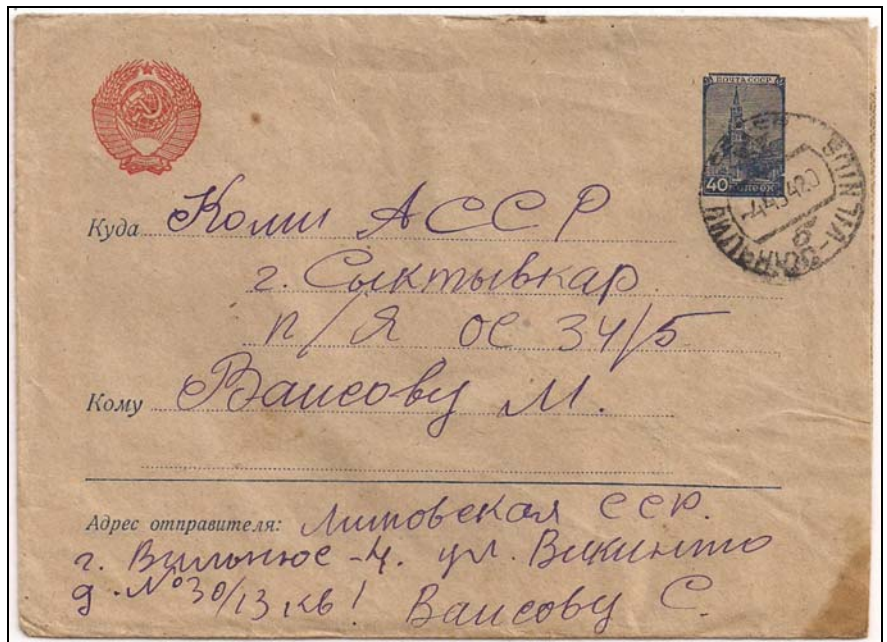 ПОЧТА СССР
40 КОПЕЕК
VILNIUS
-4 4 54 20
б
Куда Коми АССР
г. Сыктывкар
п/я ОС 34/5
Кому Ваисову М.
Адрес отправителя: Литовская ССР.
г. Вильнюс-4. ул. Викинто
д. №30/13 кв 1 Ваисову С.